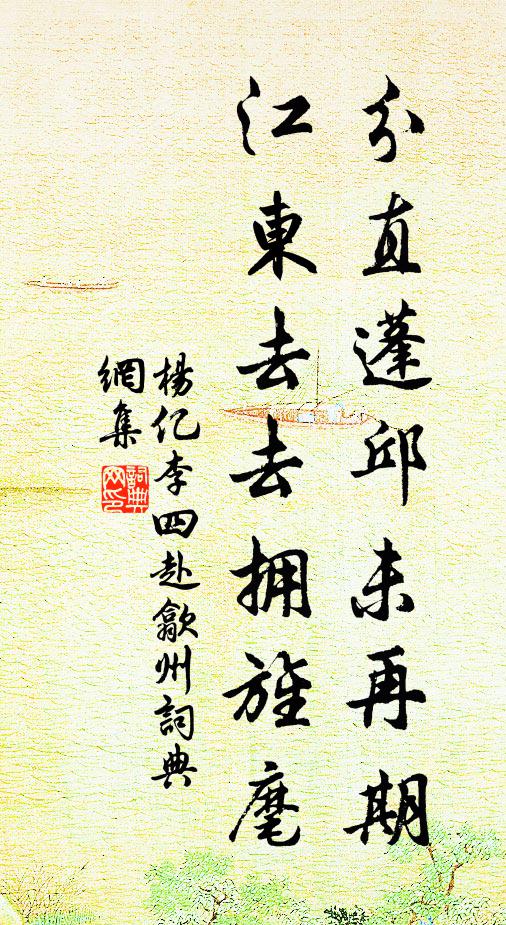 分直蓬邱未再期
江東去去拥旌麾
楊亿李四赴歙州詞典
網集
詞典
网印